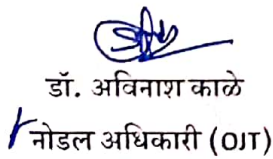 डॉ. अविनाश काळे
नोडल अधिकारी (OJT)